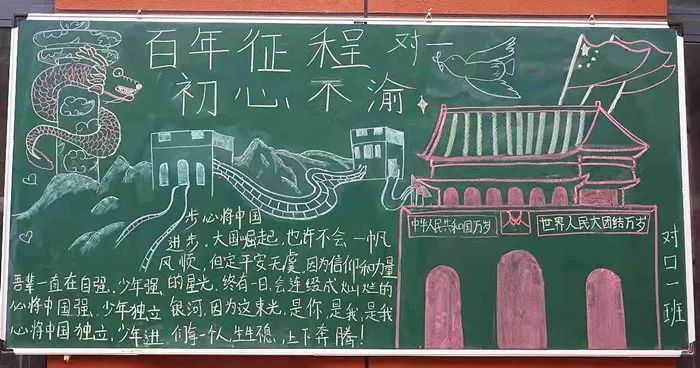 百年征程
初心不渝
对一
吾辈一直在自强,少年强
心将中国强,少年独立
心将中国独立,少年进
步心将中国
进步,大国崛起,也许不会一帆
风顺,但定平安无虞,因为信仰和力量
的星光,终有一日,会连缀成灿烂的
银河,因为这束光,是你,是我,是我
们每一个人,生生不息,上下奔腾!
中华人民共和国万岁
世界人民大团结万岁
对口一班